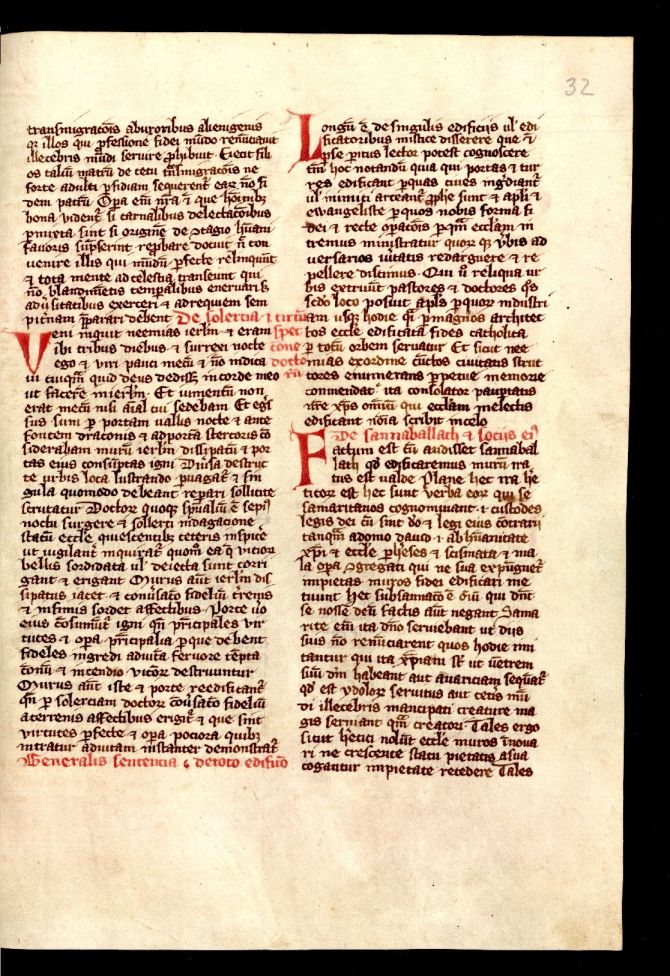 32
transmigracōis ab uxoribus alienigenis
illos qui ꝓfessione fidei mūdo renūciant
illecebris mūdi servire ꝓhibuit Eiecit fili
os taliū matrū de cetu
forte adulti ꝑfidiam sequerent
dem patrū Opa
bona vident si carnalibus delectacōibus
ꝑmixta sint si origine de stagio hūani
favoris supserint reꝓbare docuit ñ con
venire illis qui mūdum ꝑfecte relinquūt
⁊ tota mente ad celestia transeunt qui
blandimentis temꝑalibus enervari
adūsitatibus exerceri ⁊ ad requiem sem
piternam debent De solertia ⁊ circū
Veni inquit neemias ierlm ⁊ eram spec
ibi tribus diebus ⁊ surrexi nocte cōne
ego ⁊ viri pauci mecū ⁊ nō indica docto
vi cuiqm quid deus dedisset in corde meo rū
ut facere in ierlm Et iumentū non
erat mecū nisi aīal cui sedebam Et egs
sus sum ꝑ portam vallis nocte ⁊ ante
fontem draconis ⁊ ad portā stercoris cō
siderabam murū ierlm dissipatū ⁊ por
tas eius consūptas igni Diūsa destruc
te urbis loca lustrando ꝑvagat ⁊ sin
gula quomodo debeant repari sollicite
scrutatur Doctor quoq spūaliū ē sepi
noctu surgere ⁊ sollerti indagacione
statū eccle quiescentibus ceteris inspice
ut vigilant inquirat quom ea q vicior
bellis sordidata ul deiecta sunt corri
gant ⁊ erigant Murus aūt ierlm dis
sipatus iacet ⁊ conūsatō fideliū trenis
⁊ infimis sordet affectibus Porte vō
eius cōsumūt igni qn pricipales vir
tutes ⁊ oꝑa pricipalia ꝑ que debent
fideles ingredi ad vita fervore
⁊ incendio vicior destruuntur
Murus aūt iste ⁊ porte reedificant
qn ꝑ solerciam doctor cōsatō fideliū
a terrenis affectibus erigit ⁊ que sint
virtutes ꝑfecte ⁊ oꝑa pociora quib
intratur ad vitam instanter demonstrat
Generalis sentencia de toto edificō
Longū ē de singulis edificiis ul edi
ficatoribus mistice disserere que
ipse pitus lector potest cognoscere
tm hoc notandū quia qui portas ⁊ tur
res edificant ꝑ quas cives ingdiant
ul inimici arceant ꝓphe sunt ⁊ apli ⁊
ewangeliste ꝑ quos nobis forma fi
dei ⁊ recte oꝑacōis ꝑ qm ecclam in
tremus ministratur quor q ūbis ad
versarios iūtatis redarguere ⁊ re
pellere discimus Qui ū reliqua ur
bis extrūūt pastores ⁊ doctores
scdo loco posuit apls ꝑ quor industri
am usq hodie qi ꝑ magnos architec
tos eccle edificata fides catholica
ꝑ totū orbem servatur Et sicut nee
mias ex ordine cūctos civitatis struc
tores enumerans ꝑpetue memorie
cōmendat ita consolator paupertatis
nre xps omnes qui ecclam in electis
edificant nōia scribit in celo
De sannaballath ⁊ sociis ei
Factum est cū audisset sannabal
lath qd edificaremus murū ira
tus est valde Plane hec ira he
ticor est hec sunt verba eor qui se
samaritanos cognominant ⁊ custodes
legis dei cū sint dō ⁊ legi eius cōtrarii
tanqm a domo david ⁊ ab hūanitate
xpi ⁊ eccle ꝑ heses ⁊ scismata ⁊ ma
la oꝑa segregati qui ne sua expugnet
impietas muros fidei edificari me
tuunt hec subsannatō ē qui dnt
se nosse deū factis aūt negant Sama
rite etiā ita dno serviebant ut diis
suis nō renūciarent quos hodie imi
tantur qui ita xpiani st ut ventrem
suū dm habeant aut avariciam sequāt
qd est ydolor servitus aut cetis mū
di illecebris mancipati creature ma
gis serviant qm creatori Tales ergo
sicut hetici nolūt eccle muros inova
ri ne crescente statu pietatis a sua
cogantur impietate recedere Tales